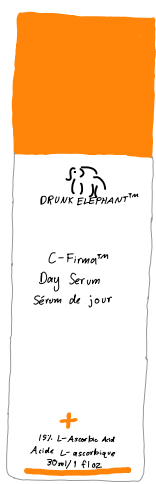 DRUNK ELEPHANT™
C-Firma™
Day Serum
Sérum de jour
+
15% L-Ascorbic Acid
Acide L-ascorbique
30ml/1 fl oz